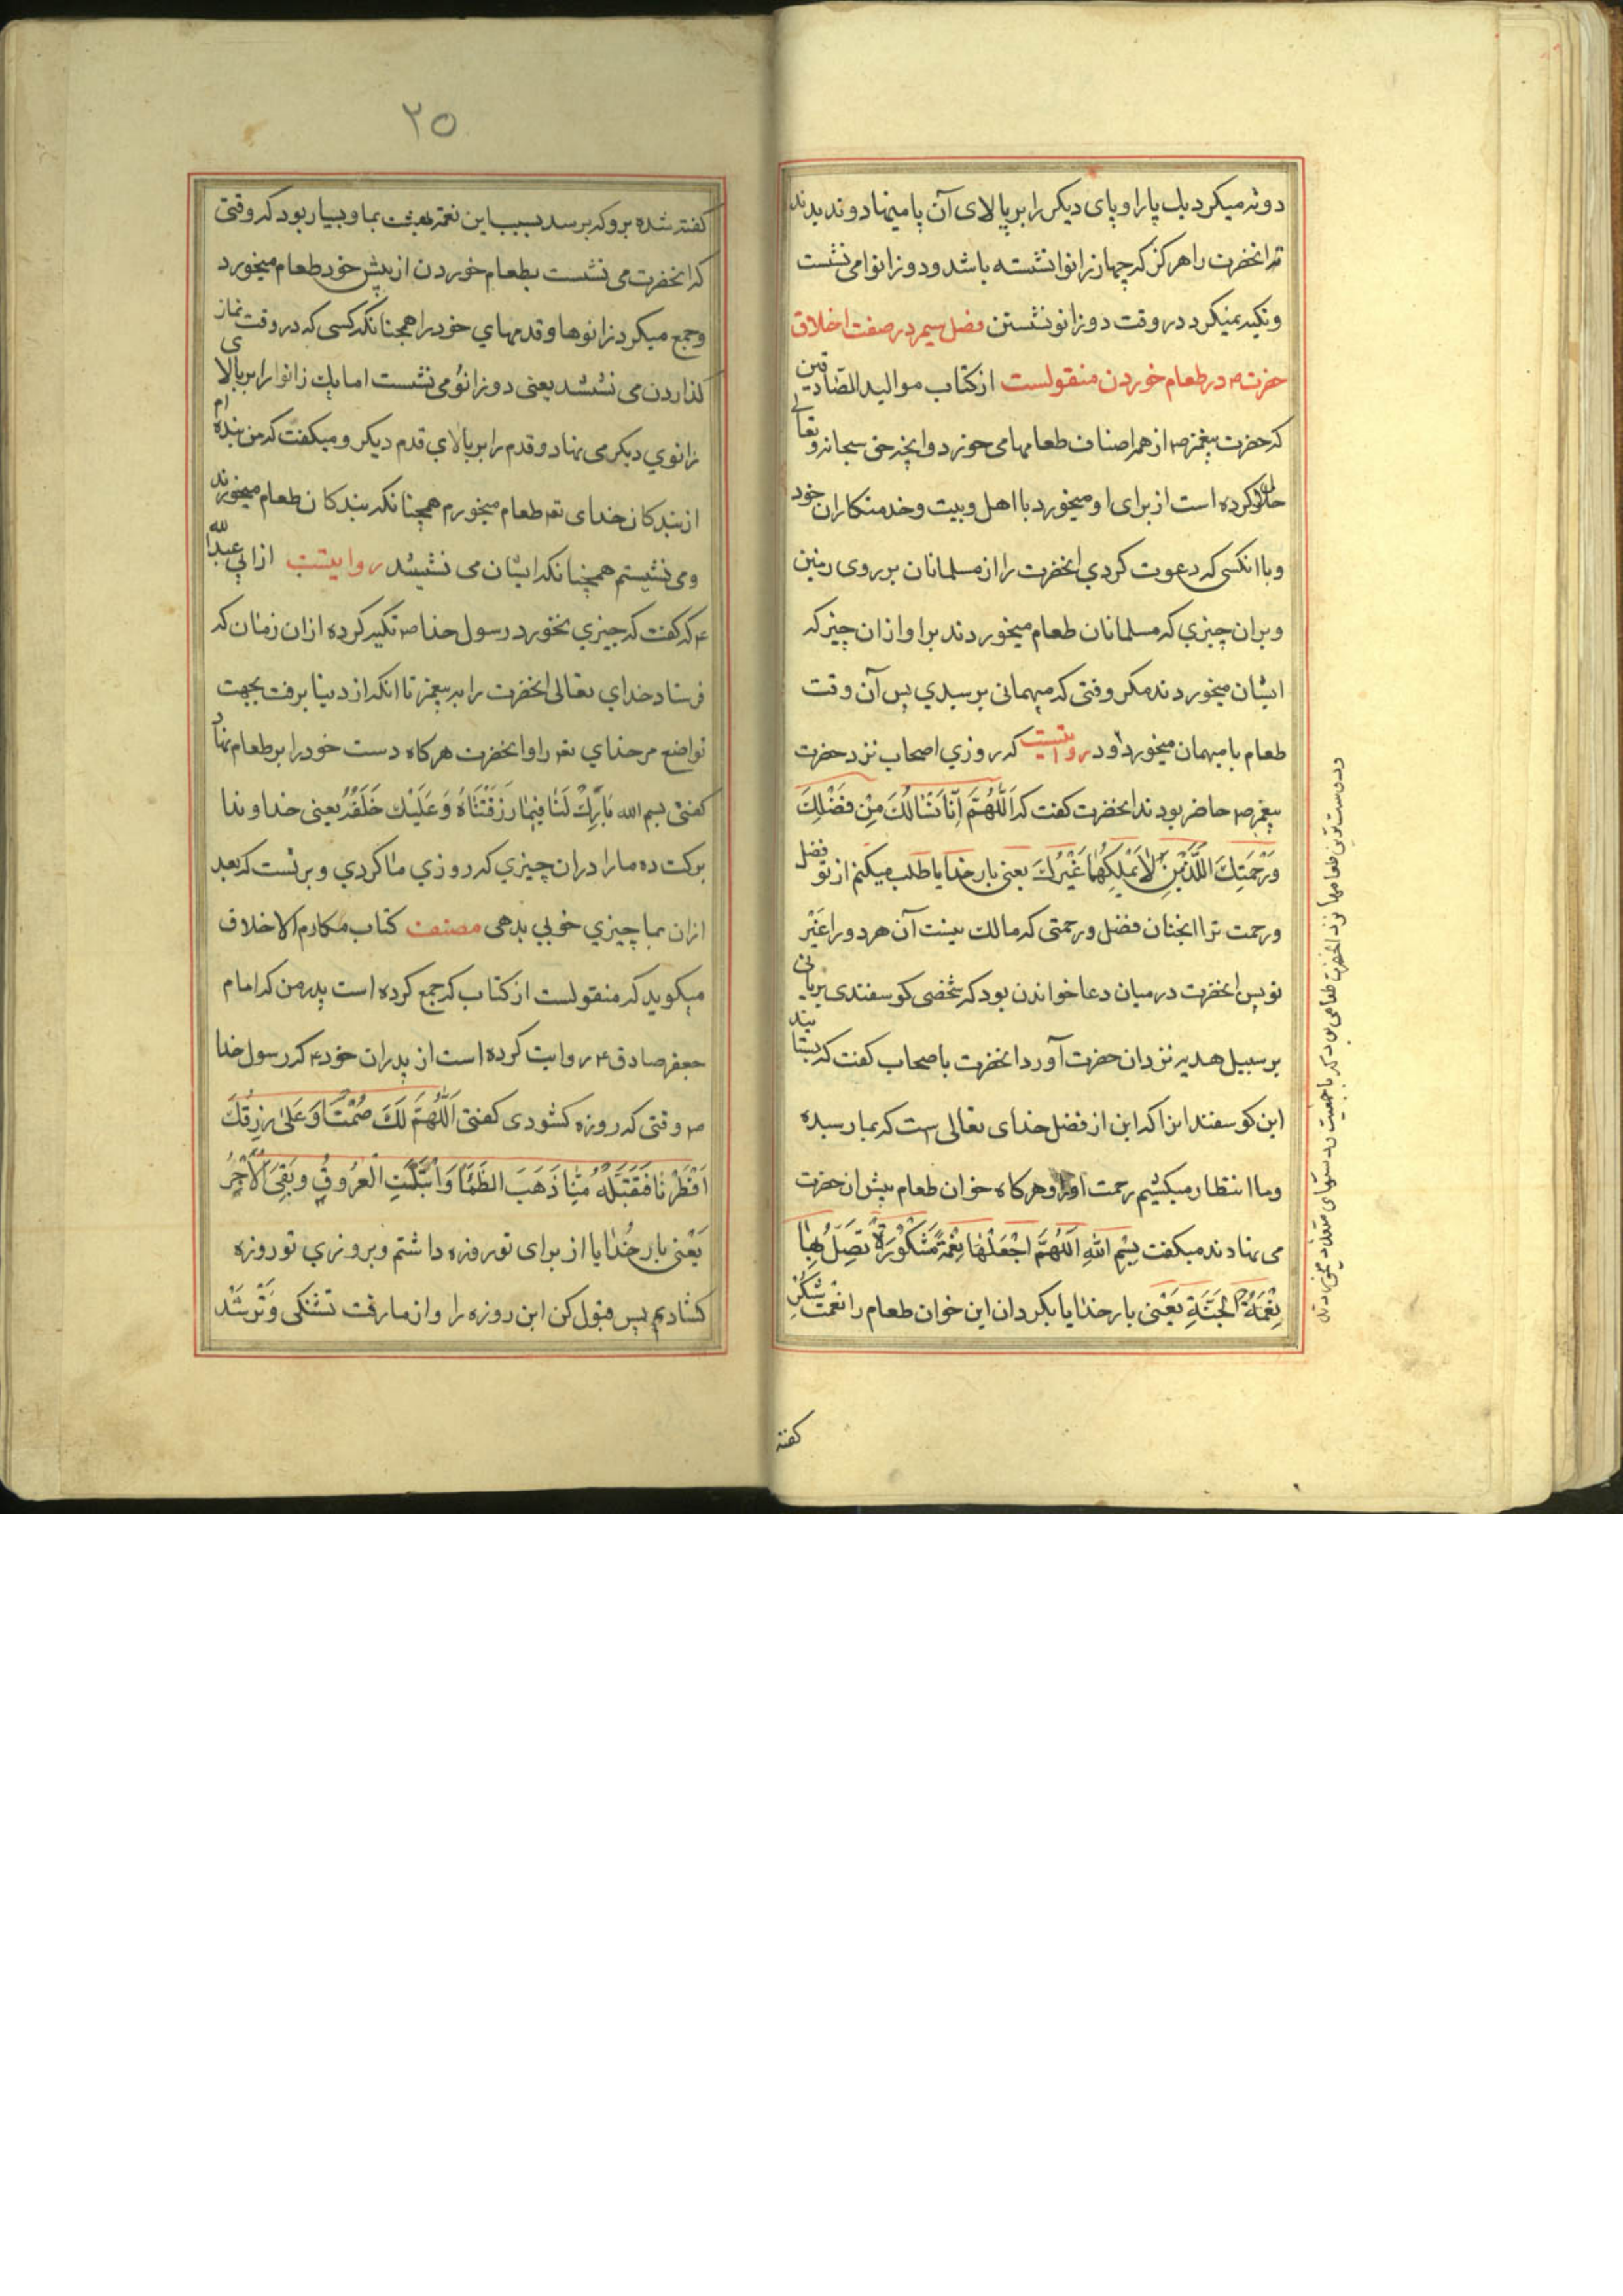 دوته میکرد یك پا را و پای دیکر را بر بالای آن پا مینهاد و ندیدند
که انحضرت را هرکز که چهار زانوا نشسته باشد و دو زانوا می نشست
و تکیه نمیکرد در وقت دو زانو نشستن فصل سیم در صفت اخلاق
حضرت ۴ در طعام خوردن منقولست از کتاب موالید الصّادقین
که حضرت پیغمبر ص از همه اصناف طعامها می خورد و انچه حق سبحانه و تعالی
حلال کرده است از برای او و میخورد با اهل و بیت و خدمتکاران خود
و با انکسی که دعوت کردي انحضرت را از مسلمانان بر روی زمین
و بران چیزي که مسلمانان طعام میخوردند برا و ازان چیز که
ایشان میخوردند مکر وقتی که میهمانی برسیدي پس آن وقت
طعام با میهمان میخورد و روایتست که روزي اصحاب نزد حضرت
پیغمبر ص حاضر بودند انحضرت کفت که اَللّٰهُمَّ اِنّا نَسْالُكَ مِنْ فَضْلِكَ
وَرَحْمَتِكَ اللَّذَیْنِ لاٰ یَمْلِکُهُمٰا غَیْرُكَ یعنی بار خدایا طلب میکنم از تو فضل
و رحمت ترا انچنان فضل و رحمتی که مالك نیست آن هر دو را غَیْر
تو پس انحضرت در میان دعا خواندن بود که شخصی کوسفندی بریانی
بر سبیل هدیه نزد ان حضرت آورد انحضرت با صحاب کفت که بستانید
این کوسفند را که این از فضل خدای تعالی ست که بما رسیده
و ما انتظار میکشیم رحمت او را و هرکاه خوان طعام پیش ان حضرت
می نهادند میکفت بِسْمِ اللهِ اَللّٰهُمَّ اجْعَلْهٰا نِعْمَةً مَشْکُورَةً تَصِلُ بِهٰا
نِعْمَةَ الْجَنَّةِ یَعْنی بار خدایا بکردان این خوان طعام را نعمت شکر
در دست ترین طعامها نزد انحضرت طعامی بود که با جمعیت و دستهای متعدد میخوردند
کفته
٢٥
کفته شده بر و که برسد بسبب این نعمة نعمت بهشت بما و بسیار بود که وقتی
که انحضرت می نشست بطعام خوردن از پیش خود طعام میخورد
و جمع میکرد زانوها و قدمهاي خود را همچنانکه کسی که در وقت نماز
کذاردن می نشیند یعنی دو زانو می نشست اما یك زانو را بر بالای
زانوي دیکر می نهاد و قدم را بر بالاي قدم دیکر و میکفت که من بنده ام
از بندکان خدای تعه طعام میخورم همچنانکه بندکان طعام میخورند
و می نشینم همچنانکه ایشان می نشینند روایتست از ابي عبد الله
۴ که کفت که چیزي نخورد رسول خدا ص تکیه کرده ازان زمان که
فرستاد خداي تعالی انحضرت را به پیغمبری تا انکه از دنیا برفت بجهت
تواضع مر خداي تعه را و انحضرت هرکاه دست خود را بر طعام نهاد
کفتی بسم الله بٰارِكْ لَنٰا فیمٰا رَزَقْتَنٰاهُ وَعَلَیْكَ خَلَفُهُ یعنی خداوندا
برکت ده ما را دران چیزي که روزي ما کردي و بر تست که بعد
ازان بما چیزي خوبي بدهی مصنف کتاب مکارم الاخلاق
میکوید که منقولست از کتاب که جمع کرده است پدر من که امام
جعفر صادق ۴ روایت کرده است از پدران خود ۴ که رسول خدا
ص وقتی که روزه کشودی کفتی اَللّٰهُمَّ لَكَ صُمْنٰا وَعَلیٰ رِزْقِكَ
اَفْطَرْنٰا فَتَقَبَّلْهُ مِنّٰا ذَهَبَ الظَّمَا وَابْتَلَّتِ الْعُرُوقُ وَبَقِیَ الْاَجْرُ
یَعْنی بار خُدٰایا از برای تو روزه داشتم و بروزي تو روزه
کشادیم پس قبول کن این روزه را و از ما رفت تشنکی وَتَر شد